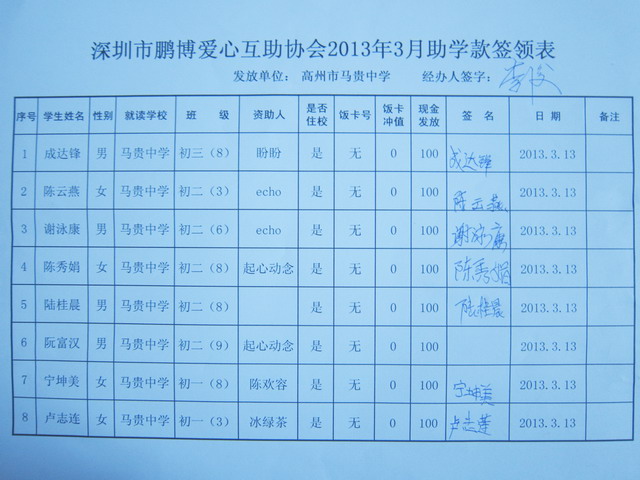 深圳市鹏博爱心互助协会2013年3月助学款签领表
发放单位： 高州市马贵中学 经办人签字： 李俊
序号 学生姓名 性别 就读学校 班 级 资助人 是否住校 饭卡号 饭卡冲值 现金发放 签 名 日 期 备注
1 成达锋 男 马贵中学 初三（8） 盼盼 是 无 0 100 成达锋 2013.3.13
2 陈云燕 女 马贵中学 初二（3） echo 是 无 0 100 陈云燕 2013.3.13
3 谢泳康 男 马贵中学 初二（6） echo 是 无 0 100 谢泳康 2013.3.13
4 陈秀娟 女 马贵中学 初二（8） 起心动念 是 无 0 100 陈秀娟 2013.3.13
5 陆桂晨 男 马贵中学 初二（8） 是 无 0 100 陆桂晨 2013.3.13
6 阮富汉 男 马贵中学 初二（9） 起心动念 是 无 0 100 2013.3.13
7 宁坤美 女 马贵中学 初一（8） 陈欢容 是 无 0 100 宁坤美 2013.3.13
8 卢志连 女 马贵中学 初一（3） 冰绿茶 是 无 0 100 卢志莲 2013.3.13